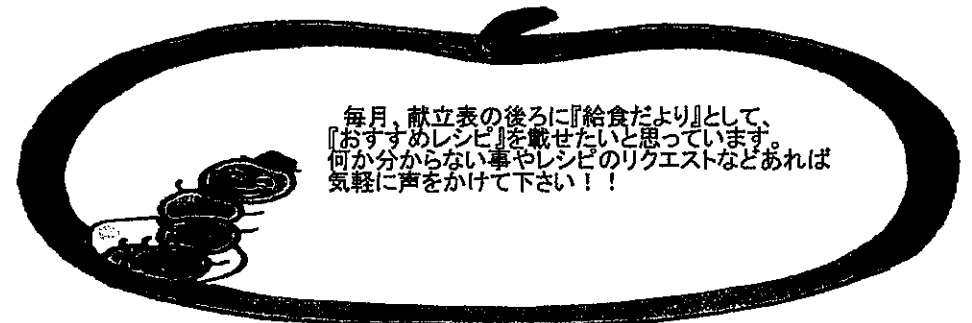 毎月、献立表の後ろに『給食だより』として、
『おすすめレシピ』を載せたいと思っています。
何か分からない事やレシピのリクエストなどあれば
気軽に声をかけて下さい！！